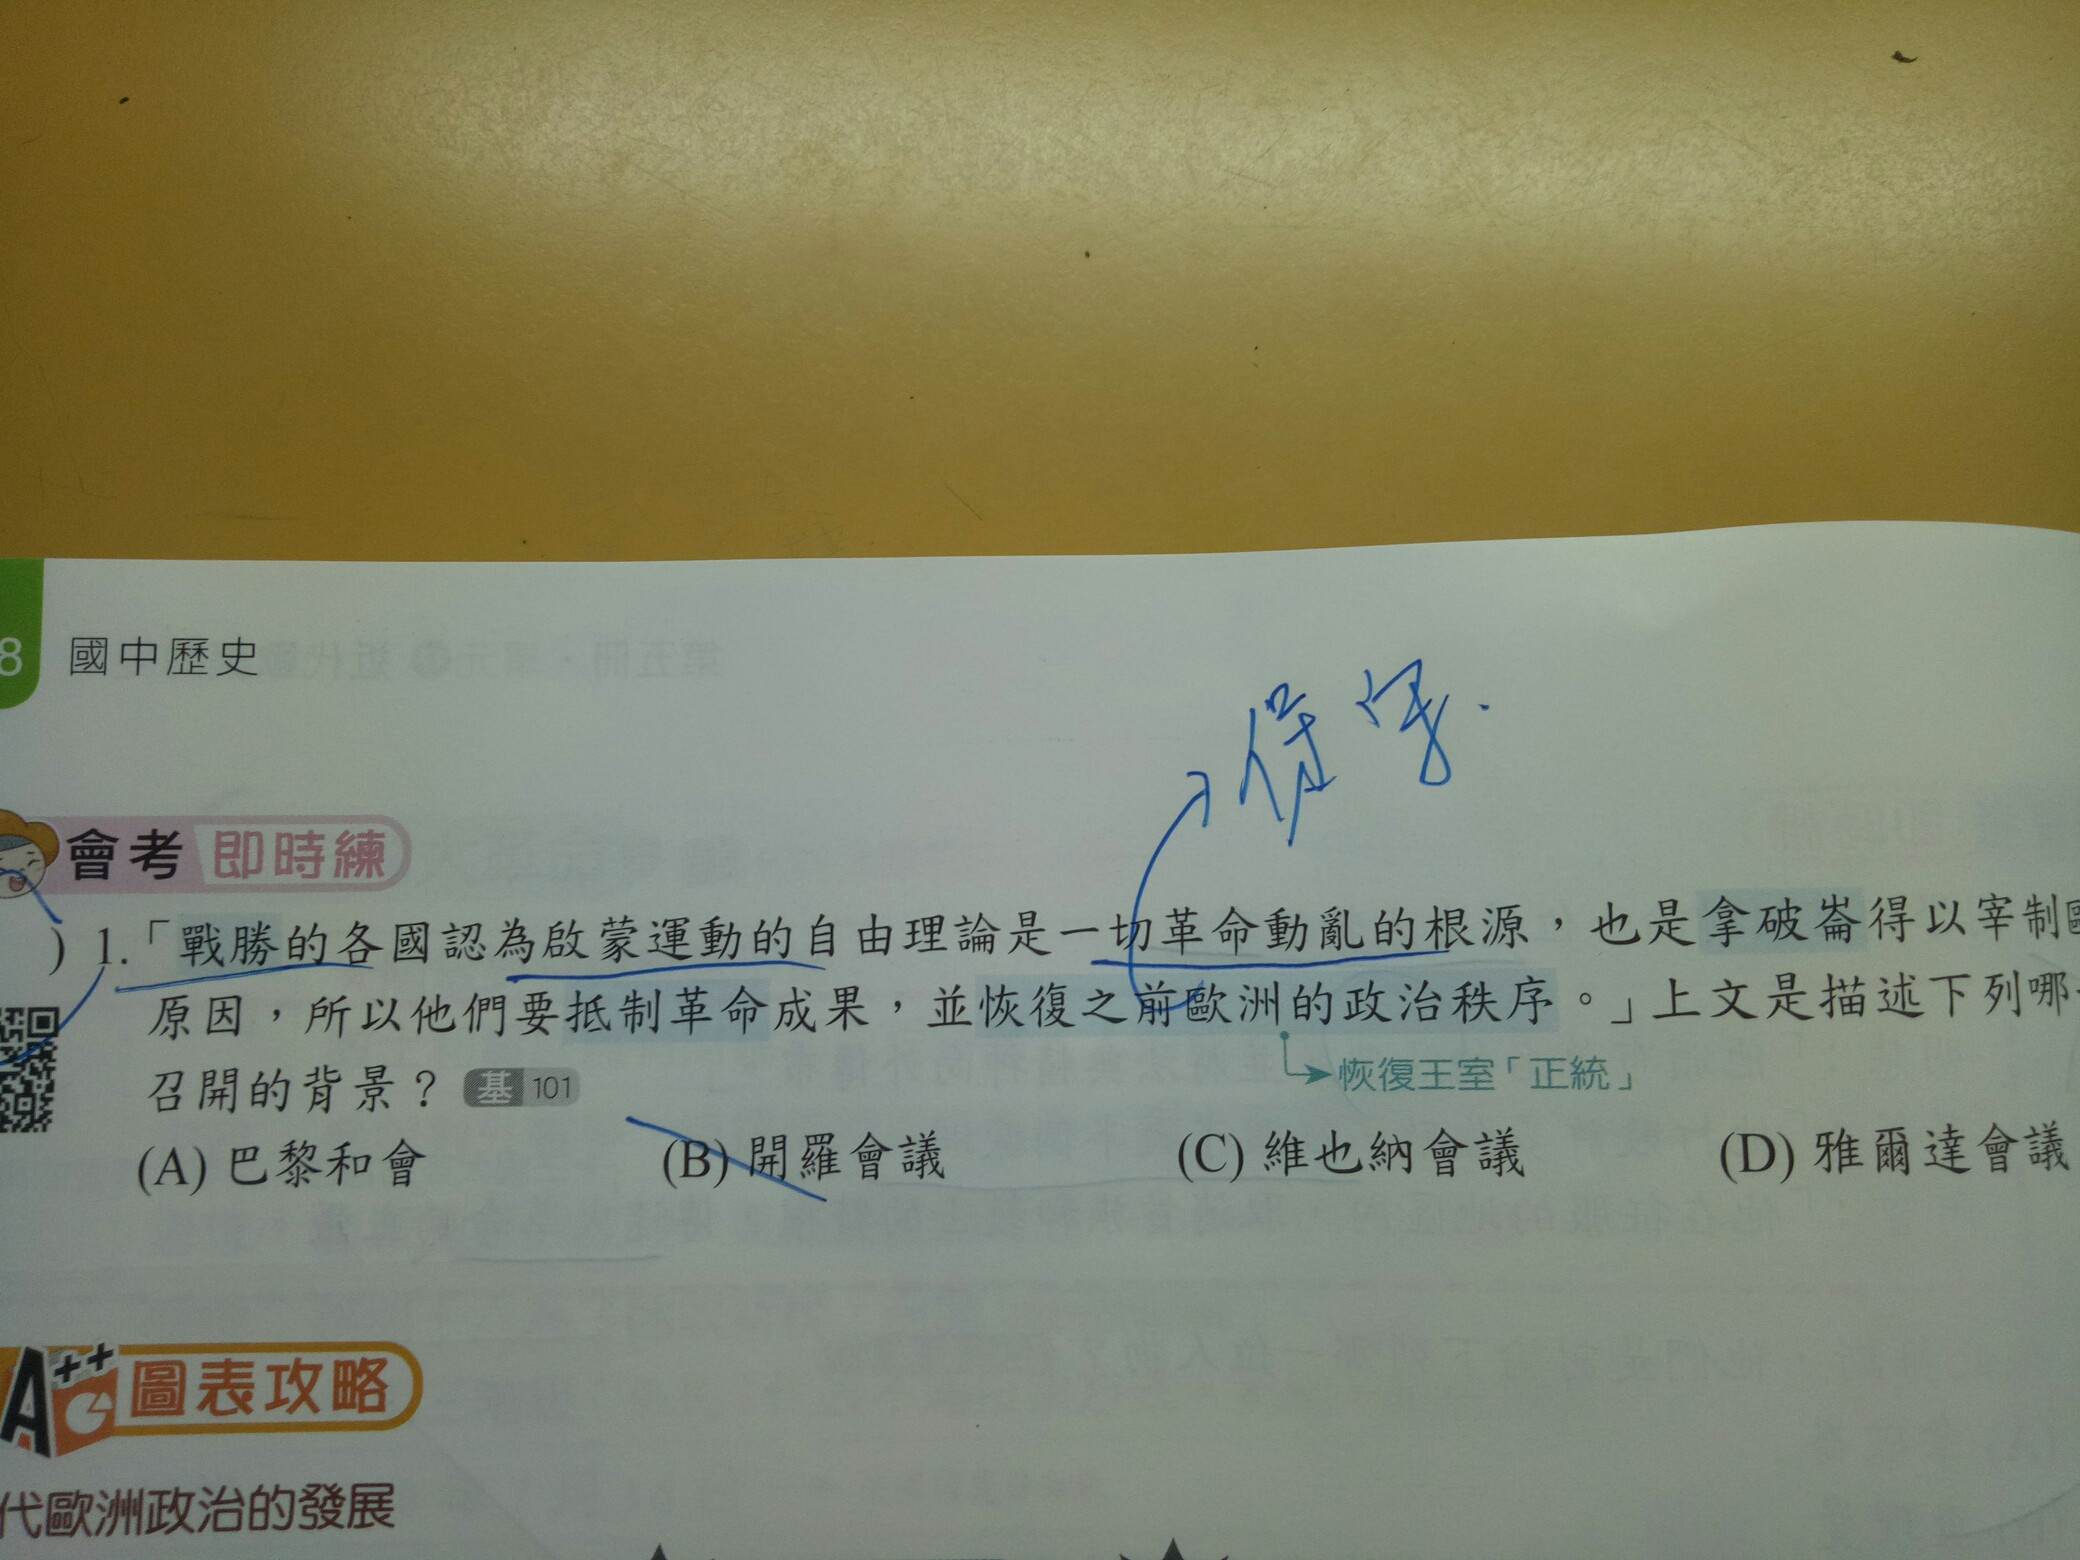 8 國中歷史
保守.
會考 即時練
) 1.「戰勝的各國認為啟蒙運動的自由理論是一切革命動亂的根源，也是拿破崙得以宰制
原因，所以他們要抵制革命成果，並恢復之前歐洲的政治秩序。」上文是描述下列哪
恢復王室「正統」
召開的背景？ 基 101
(A) 巴黎和會 (B) 開羅會議 (C) 維也納會議 (D) 雅爾達會議
A++ 圖表攻略
代歐洲政治的發展